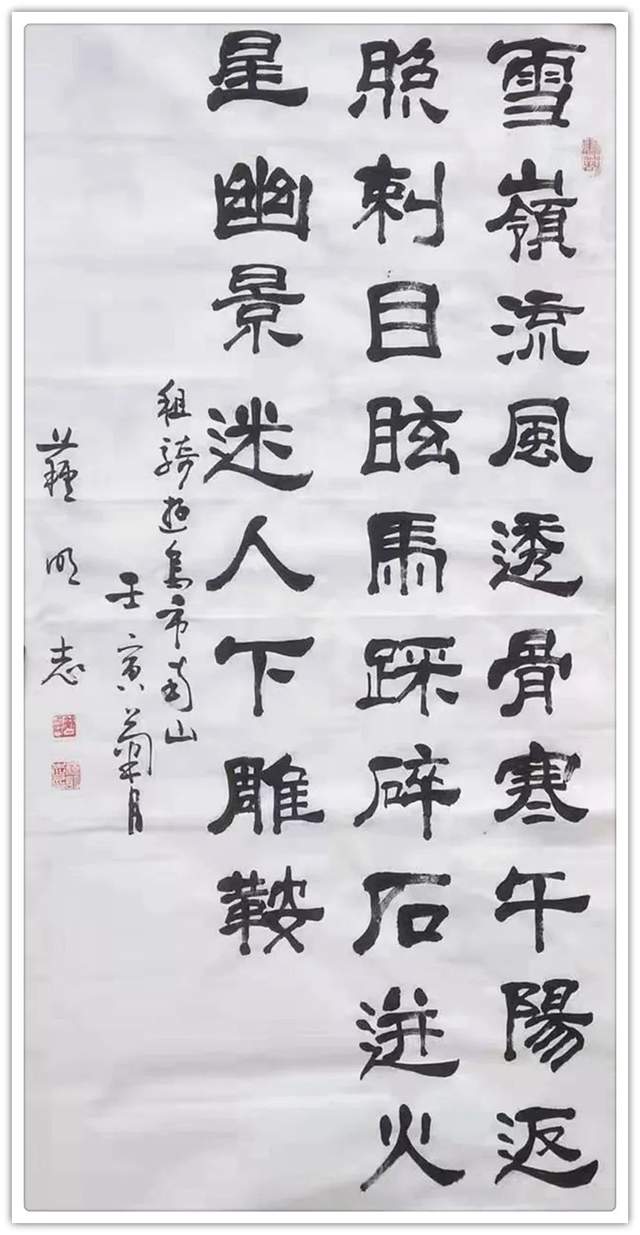 雪嶺流風透骨寒午陽返
照刺目眩馬踩碎石迸火
星幽景迷人下雕鞍
租骑遊烏市南山
壬寅蘭月
明志